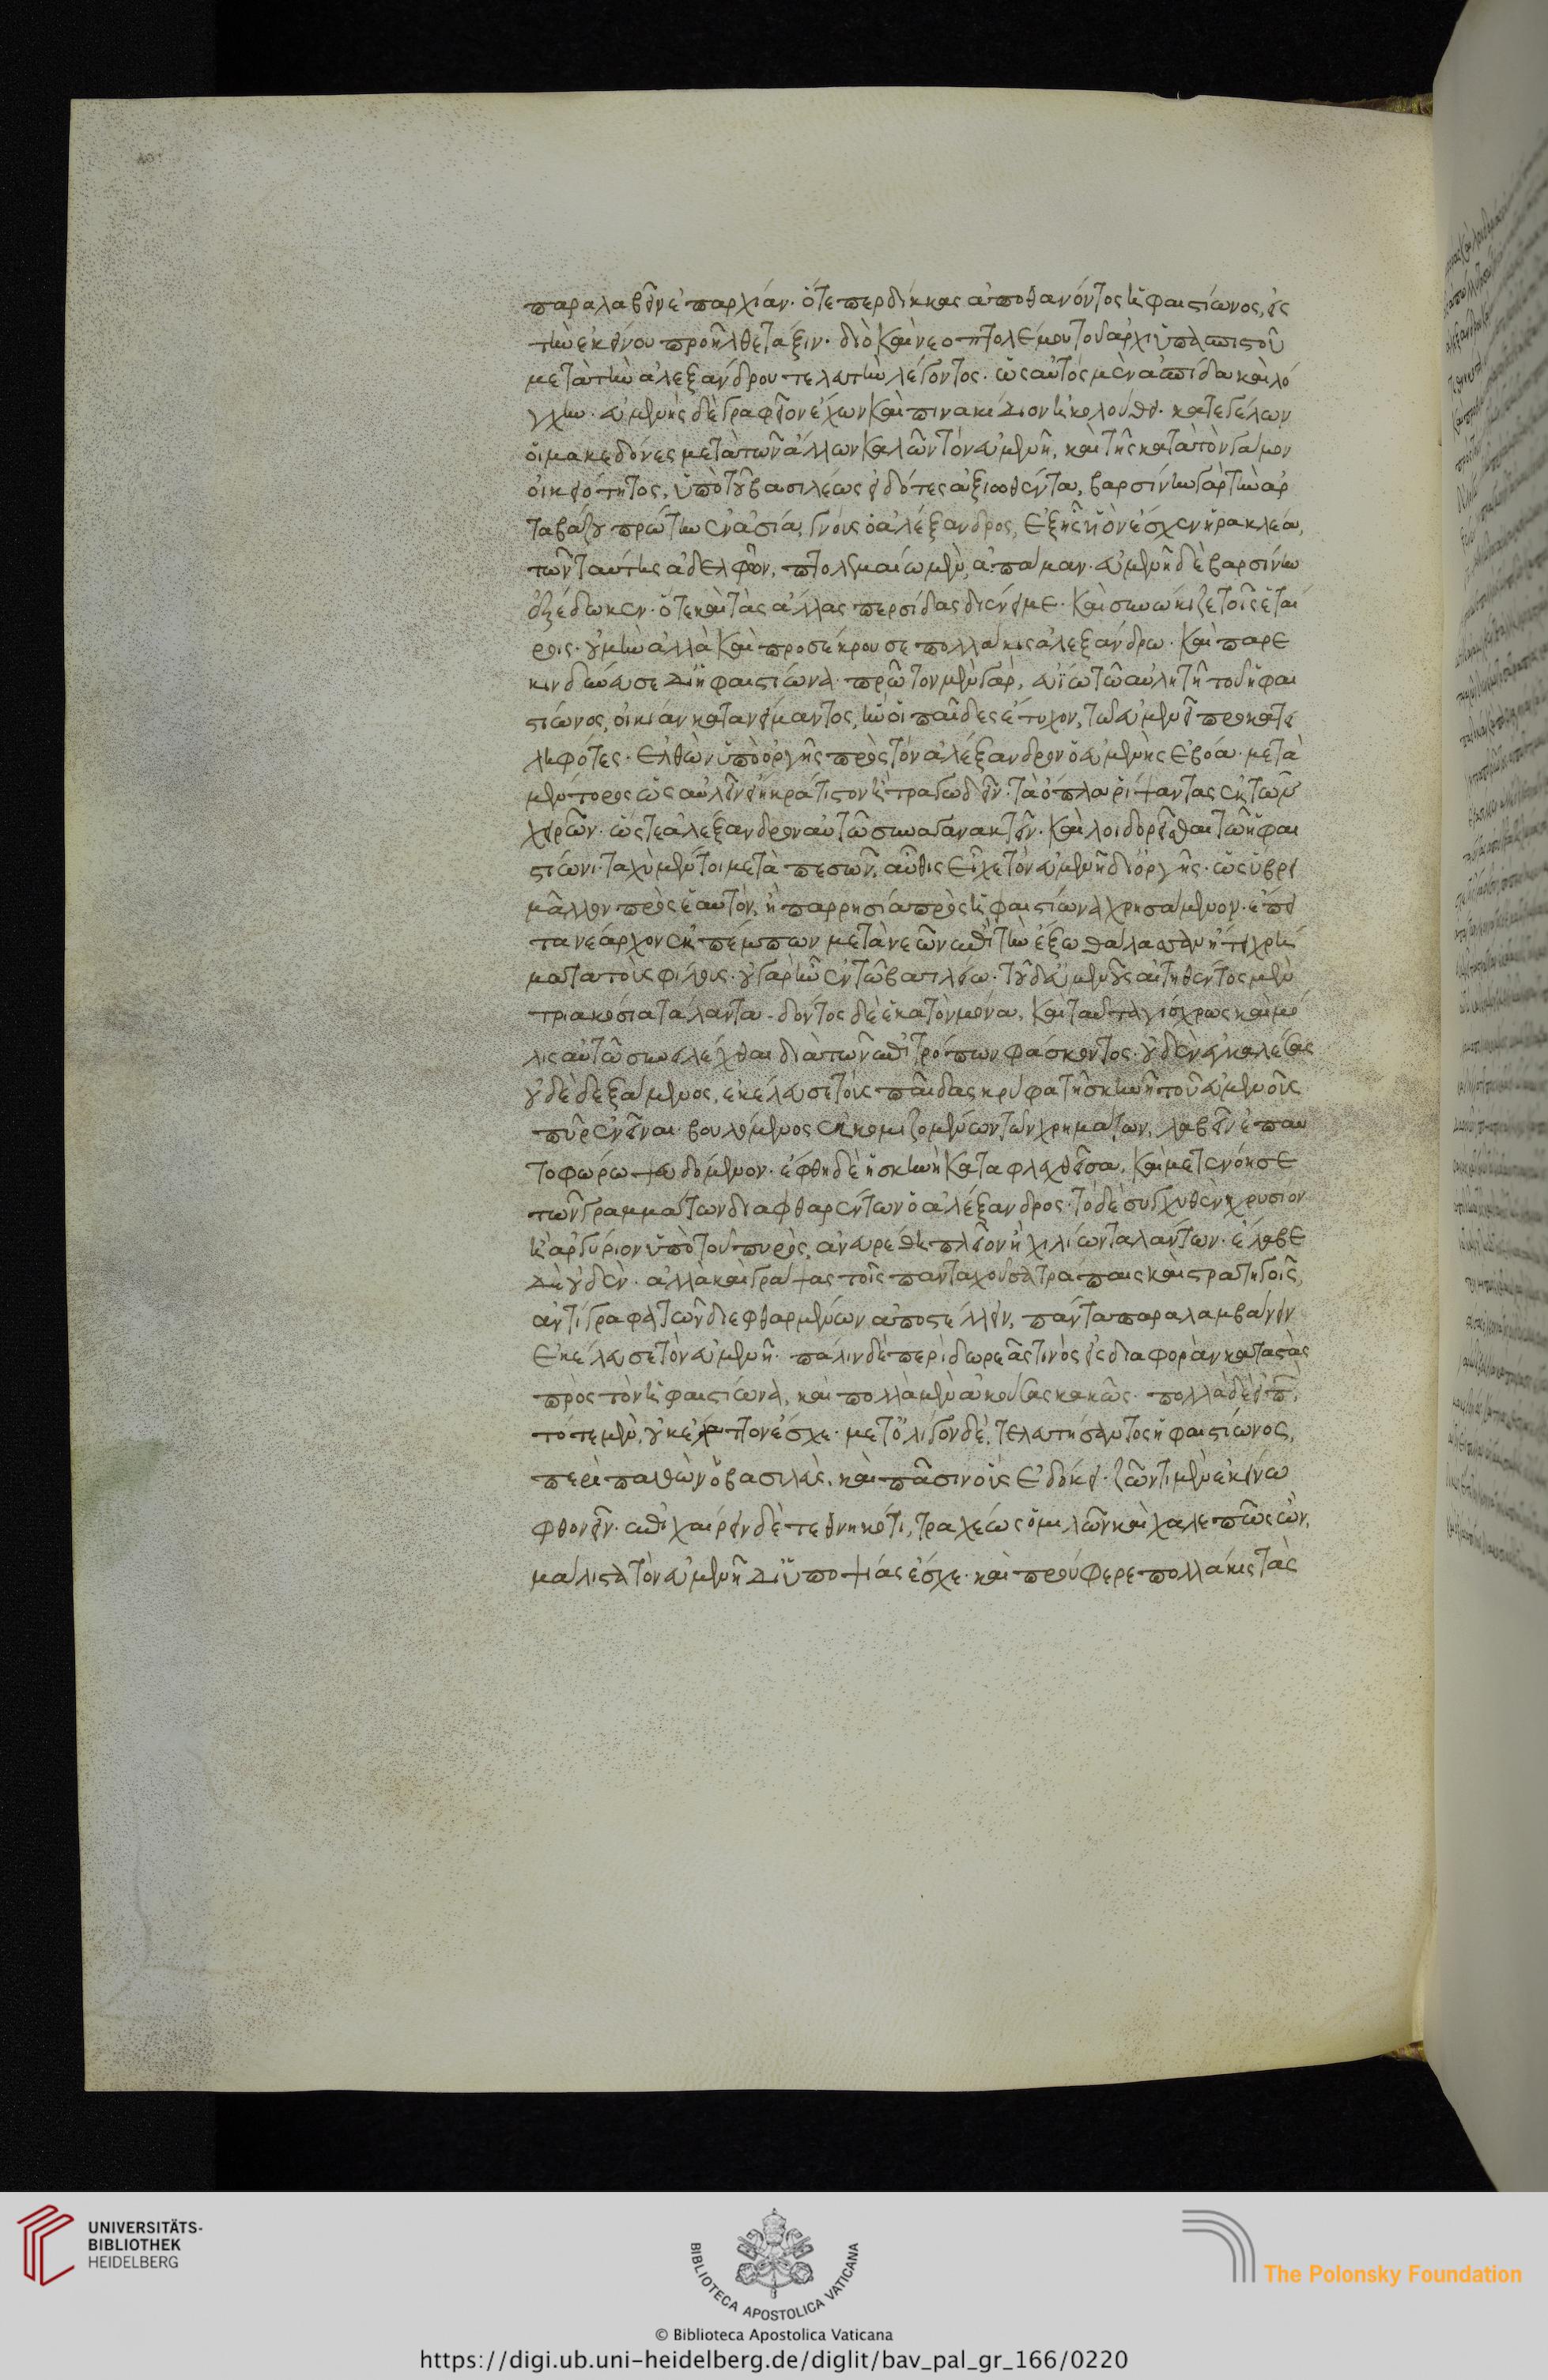 παραλαβεῖν ἐπαρχίαν· ὅτε περδίκκας ἀποθανόντος ἡφαιστίωνος, εἰς
τὴν ἐκείνου προῆλθε τάξιν· διὸ καὶ νεοπτολέμου τοῦ ἀρχιϋπασπιστοῦ
μετὰ τὴν ἀλεξάνδρου τελευτὴν λέγοντος· ὡς αὐτὸς μὲν ἀσπίδα καὶ λό
γχην· εὐμενὴς δὲ γραφεῖον ἔχων καὶ πινακίδιον ἠκολούθει· κατεγέλων
οἱ μακεδόνες μετὰ τῶν ἄλλων καλῶν τὸν εὐμενῆ, καὶ τῆς κατὰ τὸν γάμον
οἰκειότητος, ὑπὸ τοῦ βασιλέως εἰδότες ἀξιωθέντα, βαρσίνην γὰρ τὴν ἀρ
ταβάζου πρώτην ἐν ἀσία, γνοὺς ὁ ἀλέξανδρος, ἐξ ἧς υἱὸν ἔσχεν ἡρακλέα,
τῶν ταύτης ἀδελφῶν, πτολεμαίω μὲν, ἄπαμαν· εὐμενῆ δὲ βαρσίνην
ἐξέδωκεν· ὅτε καὶ τὰς ἄλλας περσίδας διένειμε· καὶ συνώκιζε τοῖς ἑταί
ροις· οὐ μὴν ἀλλὰ καὶ προσέκρουσε πολλάκις ἀλεξάνδρω· καὶ παρε
κινδύνευσε δι' ἡφαιστίωνα· πρῶτον μὲν γὰρ, εὐΐω τῶ αὐλητῆ τοῦ ἡφαι
στίωνος, οἰκίαν κατανείμαντος, ἣν οἱ παῖδες ἔτυχον, τῶ εὐμενεῖ προκατει
ληφότες· ἐλθὼν ὑπὸ ὀργῆς πρὸς τὸν ἀλέξανδρον ὁ εὐμενὴς ἐβόα· μετὰ
μέντορος ὡς αὐλεῖν εἴη κράτιστον ἢ τραγωδεῖν· τὰ ὅπλα ῥίψαντας ἐκ τῶν
χειρῶν· ὥστε ἀλέξανδρον αὐτῶ συναγανακτεῖν· καὶ λοιδορεῖσθαι τῶ ἡφαι
στίωνι· ταχὺ μέντοι μεταπεσὼν, αὖθις εἶχε τὸν εὐμενῆ δι' ὀργῆς· ὡς ὕβρει
μᾶλλον πρὸς ἑαυτὸν, ἢ παρρησία πρὸς ἡφαιστίωνα χρησάμενον· ἔπει
τα νέαρχον ἐκπέμπων μετὰ νεῶν ἐπὶ τὴν ἔξω θάλασσαν ἤτει χρή
ματα τοὺς φίλους· οὐ γὰρ ἦν ἐν τῶ βασιλείω· τοῦ δ' εὐμενοῦς αἰτηθέντος μὲν
τριακόσια τάλαντα. δόντος δὲ ἑκατὸν μόνα, καὶ ταῦτα γλίσχρως καὶ μό
λις αὐτῶ συνειλέχθαι διὰ τῶν ἐπιτρόπων φάσκοντος· οὐδὲν ἐγκαλέσας
οὐδὲ δεξάμενος, ἐκέλευσε τοὺς παῖδας κρύφα τῆ σκηνῆ τοῦ εὐμενοῦς
πῦρ ἐνεῖναι· βουλόμενος ἐκκομιζομένων τῶν χρημάτων, λαβεῖν ἐπ' αυ
τοφώρω ψευδόμενον· ἔφθη δὲ ἡ σκηνὴ καταφλεχθεῖσα, καὶ μετενόησε
τῶν γραμμάτων διαφθαρέντων ὁ ἀλέξανδρος· τὸ δὲ συγχυθὲν χρυσίον
ἢ ἀργύριον ὑπὸ τοῦ πυρὸς, ἀνευρέθη πλεῖον ἢ χιλίων ταλάντων· ἔλαβε
δὲ οὐδὲν· ἀλλὰ καὶ γράψας τοῖς πανταχοῦ σατράπαις καὶ στρατηγοῖς,
ἀντίγραφα τῶν διεφθαρμένων ἀποστέλλειν, πάντα παραλαμβάνειν
ἐκέλευσε τὸν εὐμενῆ· πάλιν δὲ περὶ δωρεᾶς τινὸς εἰς διαφορὰν καταστὰς
πρὸς τὸν ἡφαιστίωνα, καὶ πολλὰ μὲν ἀκούσας κακῶς· πολλὰ δὲ εἰπ,
τότε μὲν, οὐκ ἔλαττον ἔσχε· μετ' ὀλίγον δὲ, τελευτήσαντος ἡφαιστίωνος,
περιπαθῶν ὁ βασιλεὺς, καὶ πᾶσιν οὓς ἐδόκει· ζῶντι μὲν ἐκείνω
φθονεῖν· ἐπιχαίρειν δὲ τεθνηκότι, τραχέως ὁμιλῶν καὶ χαλεπὸς ὢν,
μάλιστα τὸν εὐμενῆ δι' ὑποψίας ἔσχε· καὶ προύφερε πολλάκις τὰς
UNIVERSITÄTS-
BIBLIOTHEK
HEIDELBERG
BIBLIOTECA APOSTOLICA VATICANA
© Biblioteca Apostolica Vaticana
The Polonsky Foundation
https://digi.ub.uni-heidelberg.de/diglit/bav_pal_gr_166/0220